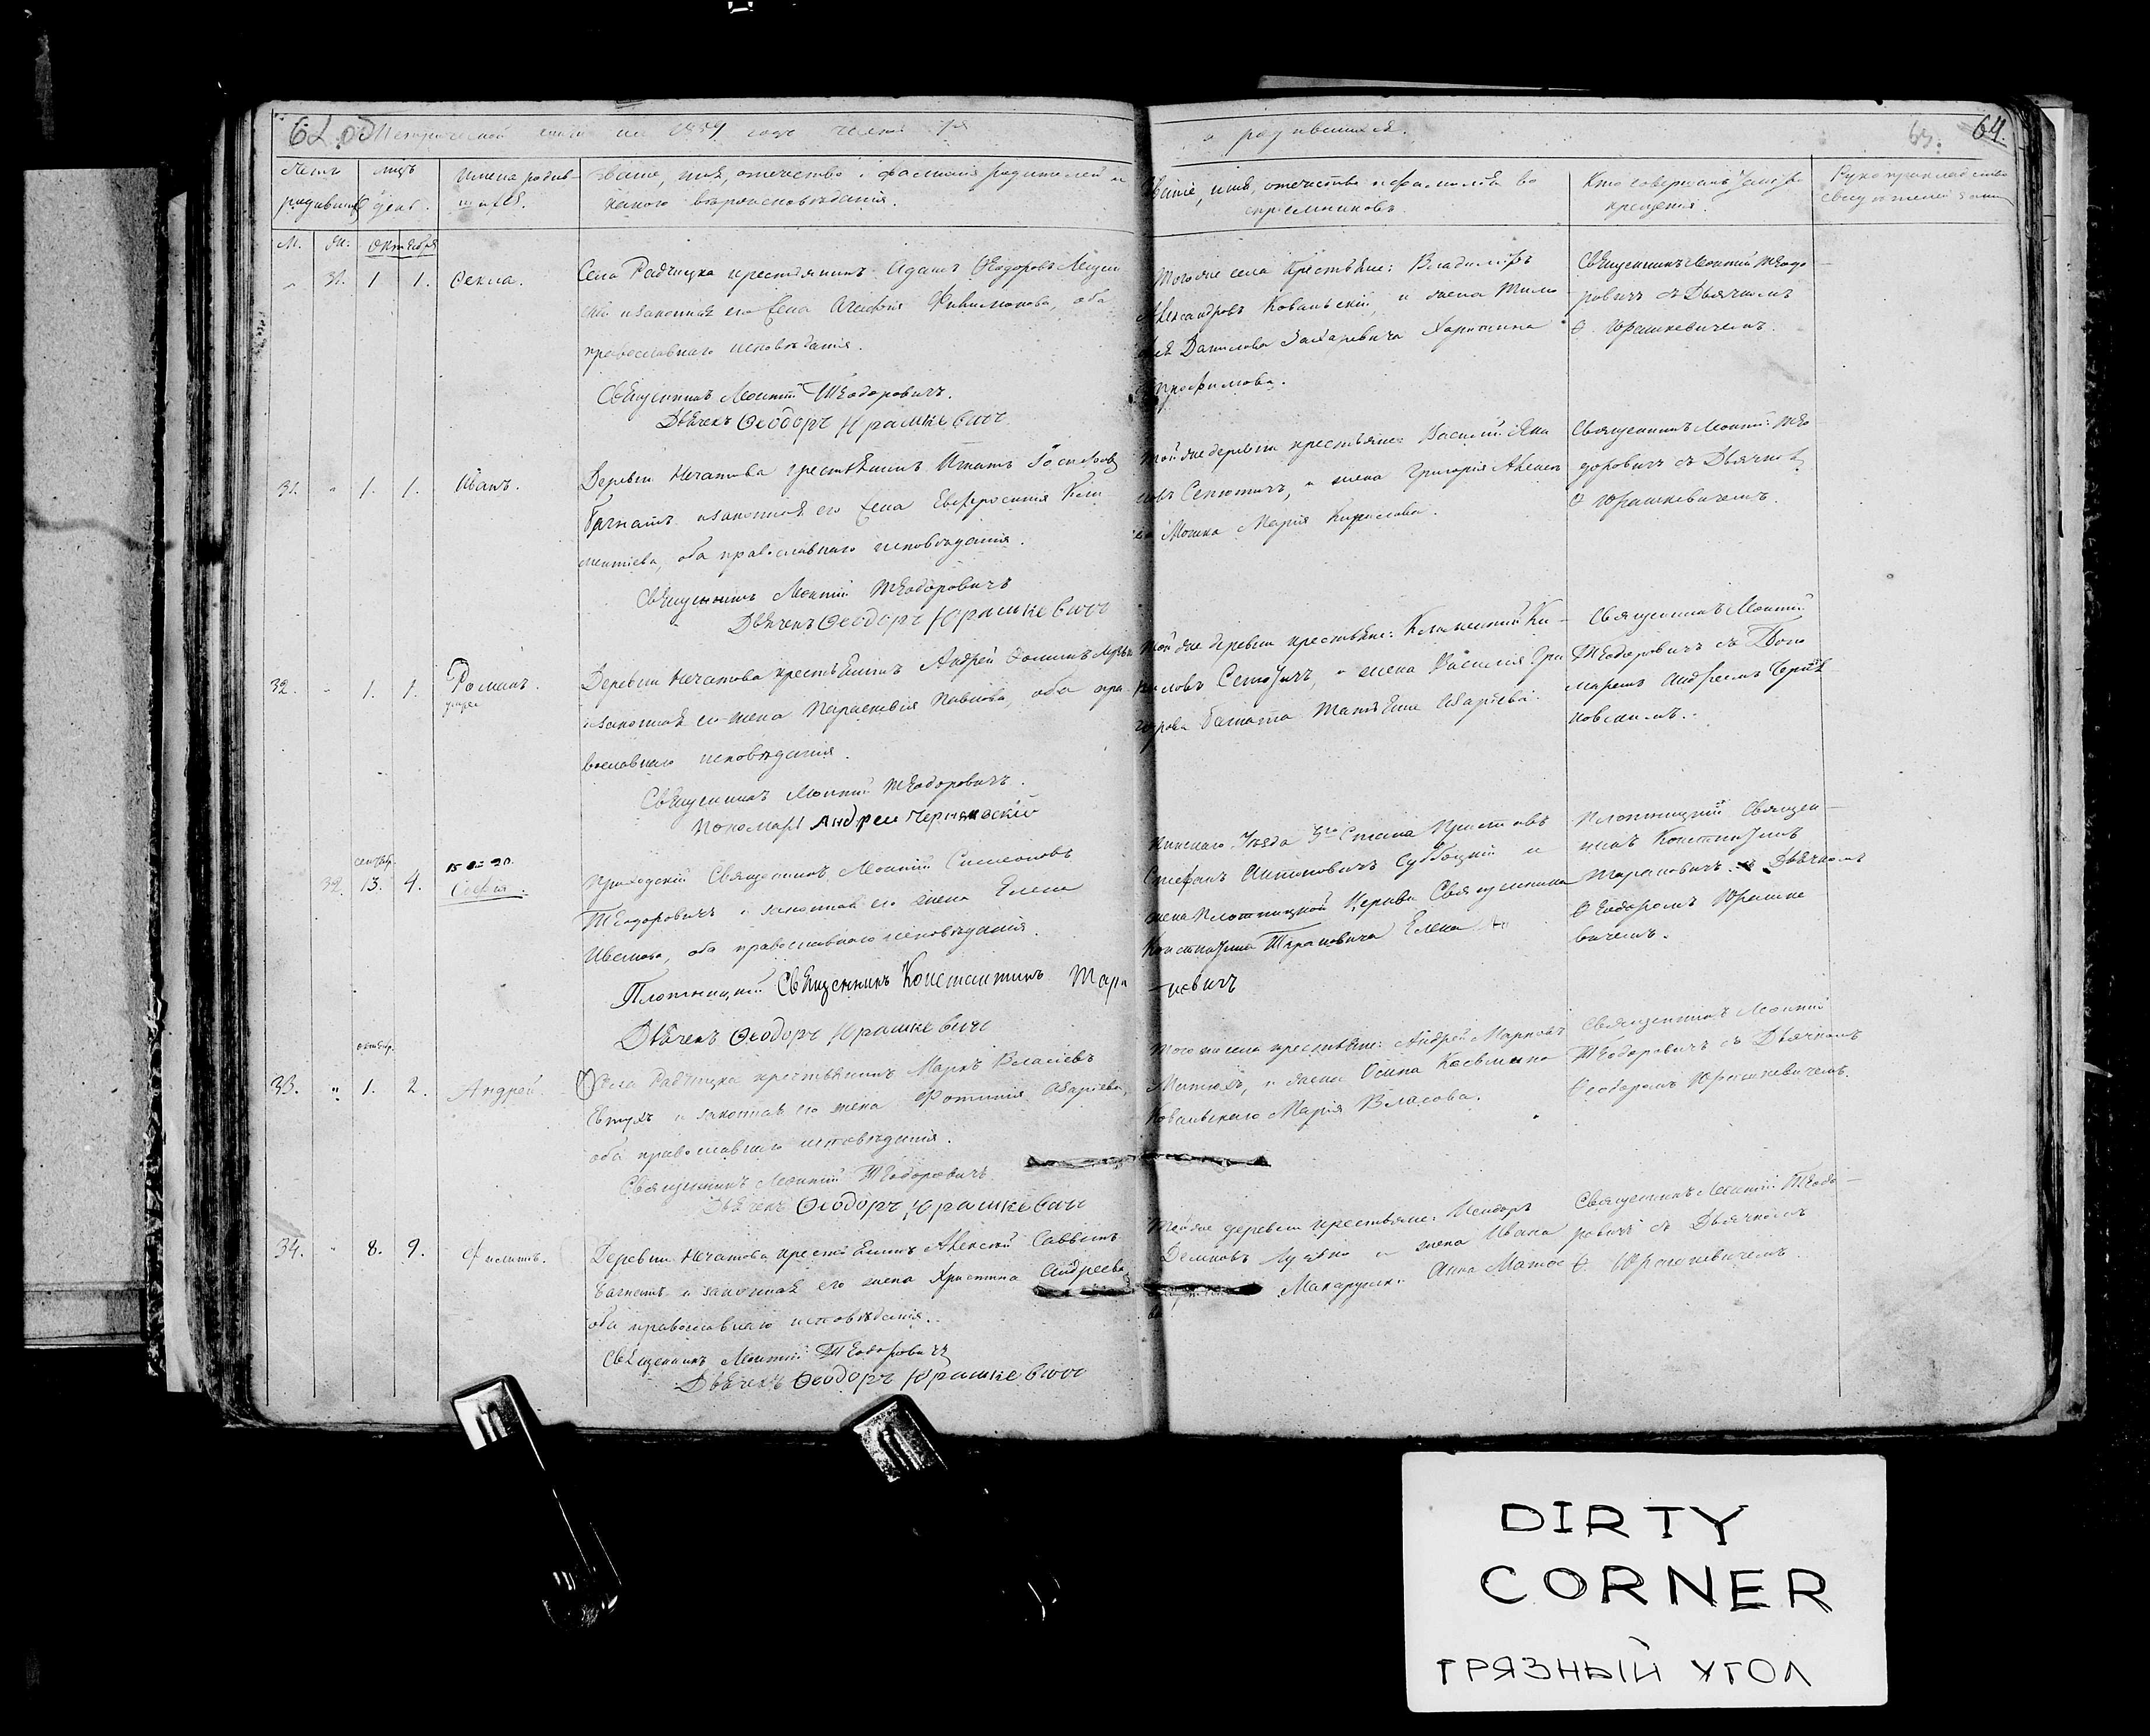 62 об
Метрической книги на 1859 годъ часть 1я
о родившихся.
63.
64.
Счетъ родившихся
мѣсяцъ день.
Имена родившихся.
Званіе, имя, отечество и фамилія родителей и
какого вѣроисповѣданія.
Званіе, имя, отечество и фамилія во
спріемниковъ.
Кто совершалъ таинство
крещенія.
Рукоприкладство
свидѣтелей
М. Ж. Октября
31. 1 1. Ѳекла.
Села Радчицка крестьянинъ Адамъ Ѳеодоровъ
и законная его жена Агафія Филимонова, оба
православнаго исповѣданія.
Священникъ Леонтій Тѣодоровичъ.
Дьячекъ Ѳеодоръ Юрашкевичъ
Того же села крестьяне: Владимиръ
Александровъ Ковальскій, и жена Тимо
фея Данилова Захаревича Харитина
Трофимова.
Священникъ Леонтій Тѣодо
ровичъ съ Дьячкомъ
Ѳ. Юрашкевичемъ.
31. " 1. 1. Иванъ.
Деревни Нечатова крестьянинъ Игнатъ
Багнатъ и законная его жена Евфросинія Кли
ментіева, оба православнаго исповѣданія.
Священникъ Леонтій Тѣодоровичъ
Дьячекъ Ѳеодоръ Юрашкевичъ
Той же деревни крестьяне: Василій
Сенютичъ, и жена Григорія Алексѣ
ева Мошка Марія Кирилова.
Священникъ Леонтій Тѣо
доровичъ съ Дьячкомъ
Ѳ Юрашкевичемъ.
32. " 1. 1. Романъ.
умре
Деревни Нечатова крестьянинъ Андрей Ѳоминъ
и законная его жена Параскевія Павлова, оба пра
вославнаго исповѣданія.
Священникъ Леонтій Тѣодоровичъ.
Пономарь Андрей Чернявскій
Той же деревни крестьяне: Климентій Ки
риловъ Сенютичъ, и жена Василія Гри
горова Багната Татьяна Азаріева.
Священникъ Леонтій
Тѣодоровичъ съ Поно
маремъ Андреемъ Черня
вскимъ.
сентябр.
32. 13. 4. Софія.
Приходскій Священникъ Леонтій Симеоновъ
Тѣодоровичъ и законная его жена Елена
Иванова, оба православнаго исповѣданія.
Плотницкій Священникъ Константинъ Тара
новичъ
Дьячекъ Ѳеодоръ Юрашкевичъ
Пинскаго Уѣзда 3го Стана Приставъ
Стефанъ Антоновичъ Субоцкій и
жена Плотницкой Церкви Священника
Константина Тарановича Елена
Плотницкій Священ
никъ Константинъ
Тарановичъ съ Дьячкомъ
Ѳеодоромъ Юрашке
вичемъ.
октябр.
33. " 1. 2. Андрей.
Села Радчицка крестьянинъ Маркъ Власіевъ
Евтухъ и законная его жена Фотинія Азаріева,
оба православнаго исповѣданія.
Священникъ Леонтій Тѣодоровичъ
Дьячекъ Ѳеодоръ Юрашкевичъ
Того же села крестьяне: Андрей Марковъ
Матюхъ, и жена Осипа Косьмина
Ковальскаго Марія Власова.
Священникъ Леонтій
Тѣодоровичъ съ Дьячкомъ
Ѳеодоромъ Юрашкевичемъ.
34. " 8. 9. Филиппъ.
Деревни Нечатова крестьянинъ Алексѣй Саввинъ
Багнатъ и законная его жена Христина Андреева
оба православнаго исповѣданія.
Священникъ Леонтій Тѣодоровичъ
Дьячекъ Ѳеодоръ Юрашкевичъ
Той же деревни крестьяне: Исидоръ
Деминъ и жена Ивана
Макарушки Анна Матве
ва
Священникъ Леонтій Тѣодо
ровичъ съ Дьячкомъ
Ѳ. Юрашкевичемъ.
DIRTY
CORNER
ГРЯЗНЫЙ УГОЛ